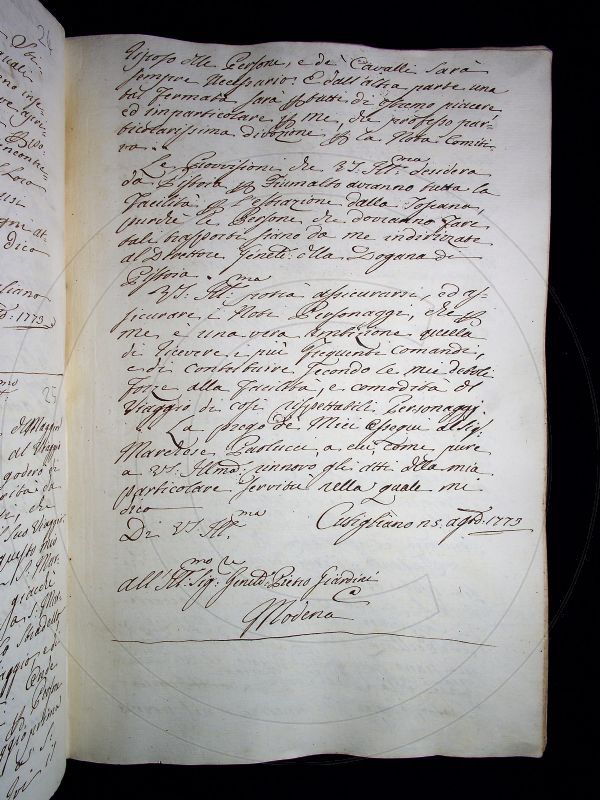 24
Riposo delle Persone, e de' Cavalli sarà
sempre Necessario: E dall'altra parte una
tal Fermata sarà p tutti di estremo piacere
ed imparticolare p me, che professo par-
ticolarissima divozione p la Nota Comiti
va:
Le Provvisioni che VS. Ill:ma desidera
da Pistoia p Fiumalbo avranno tutta la
Facilità p l'estrazione dalla Toscana,
purché le Persone che dovranno fare
tali trasporti siano da me indirizzate
al Direttore Genele: della Dogana di
Pistoia.
VS: Ill:ma potrà assicurarsi, ed as-
sicurare i Noti Personaggi, che p
me è una vera Ambizione quella
di ricevere i più frequenti Comandi,
e di contribuire secondo le mie deboli
Forze alla Facilità, e comodità del
Viaggio di così rispettabili Personaggi.
La prego de Miei Ossequi al Sig:
Marchese Paolucci, a cui, come pure
a VS. Illma: rinnovo gli atti della mia
particolare servitù nella quale mi
dico
Di VS. Ill:ma
Cutigliano 25. agto: 1779
all'Ill:mo Sig:r Genele: Pietro Giardini
Modena
1779
25